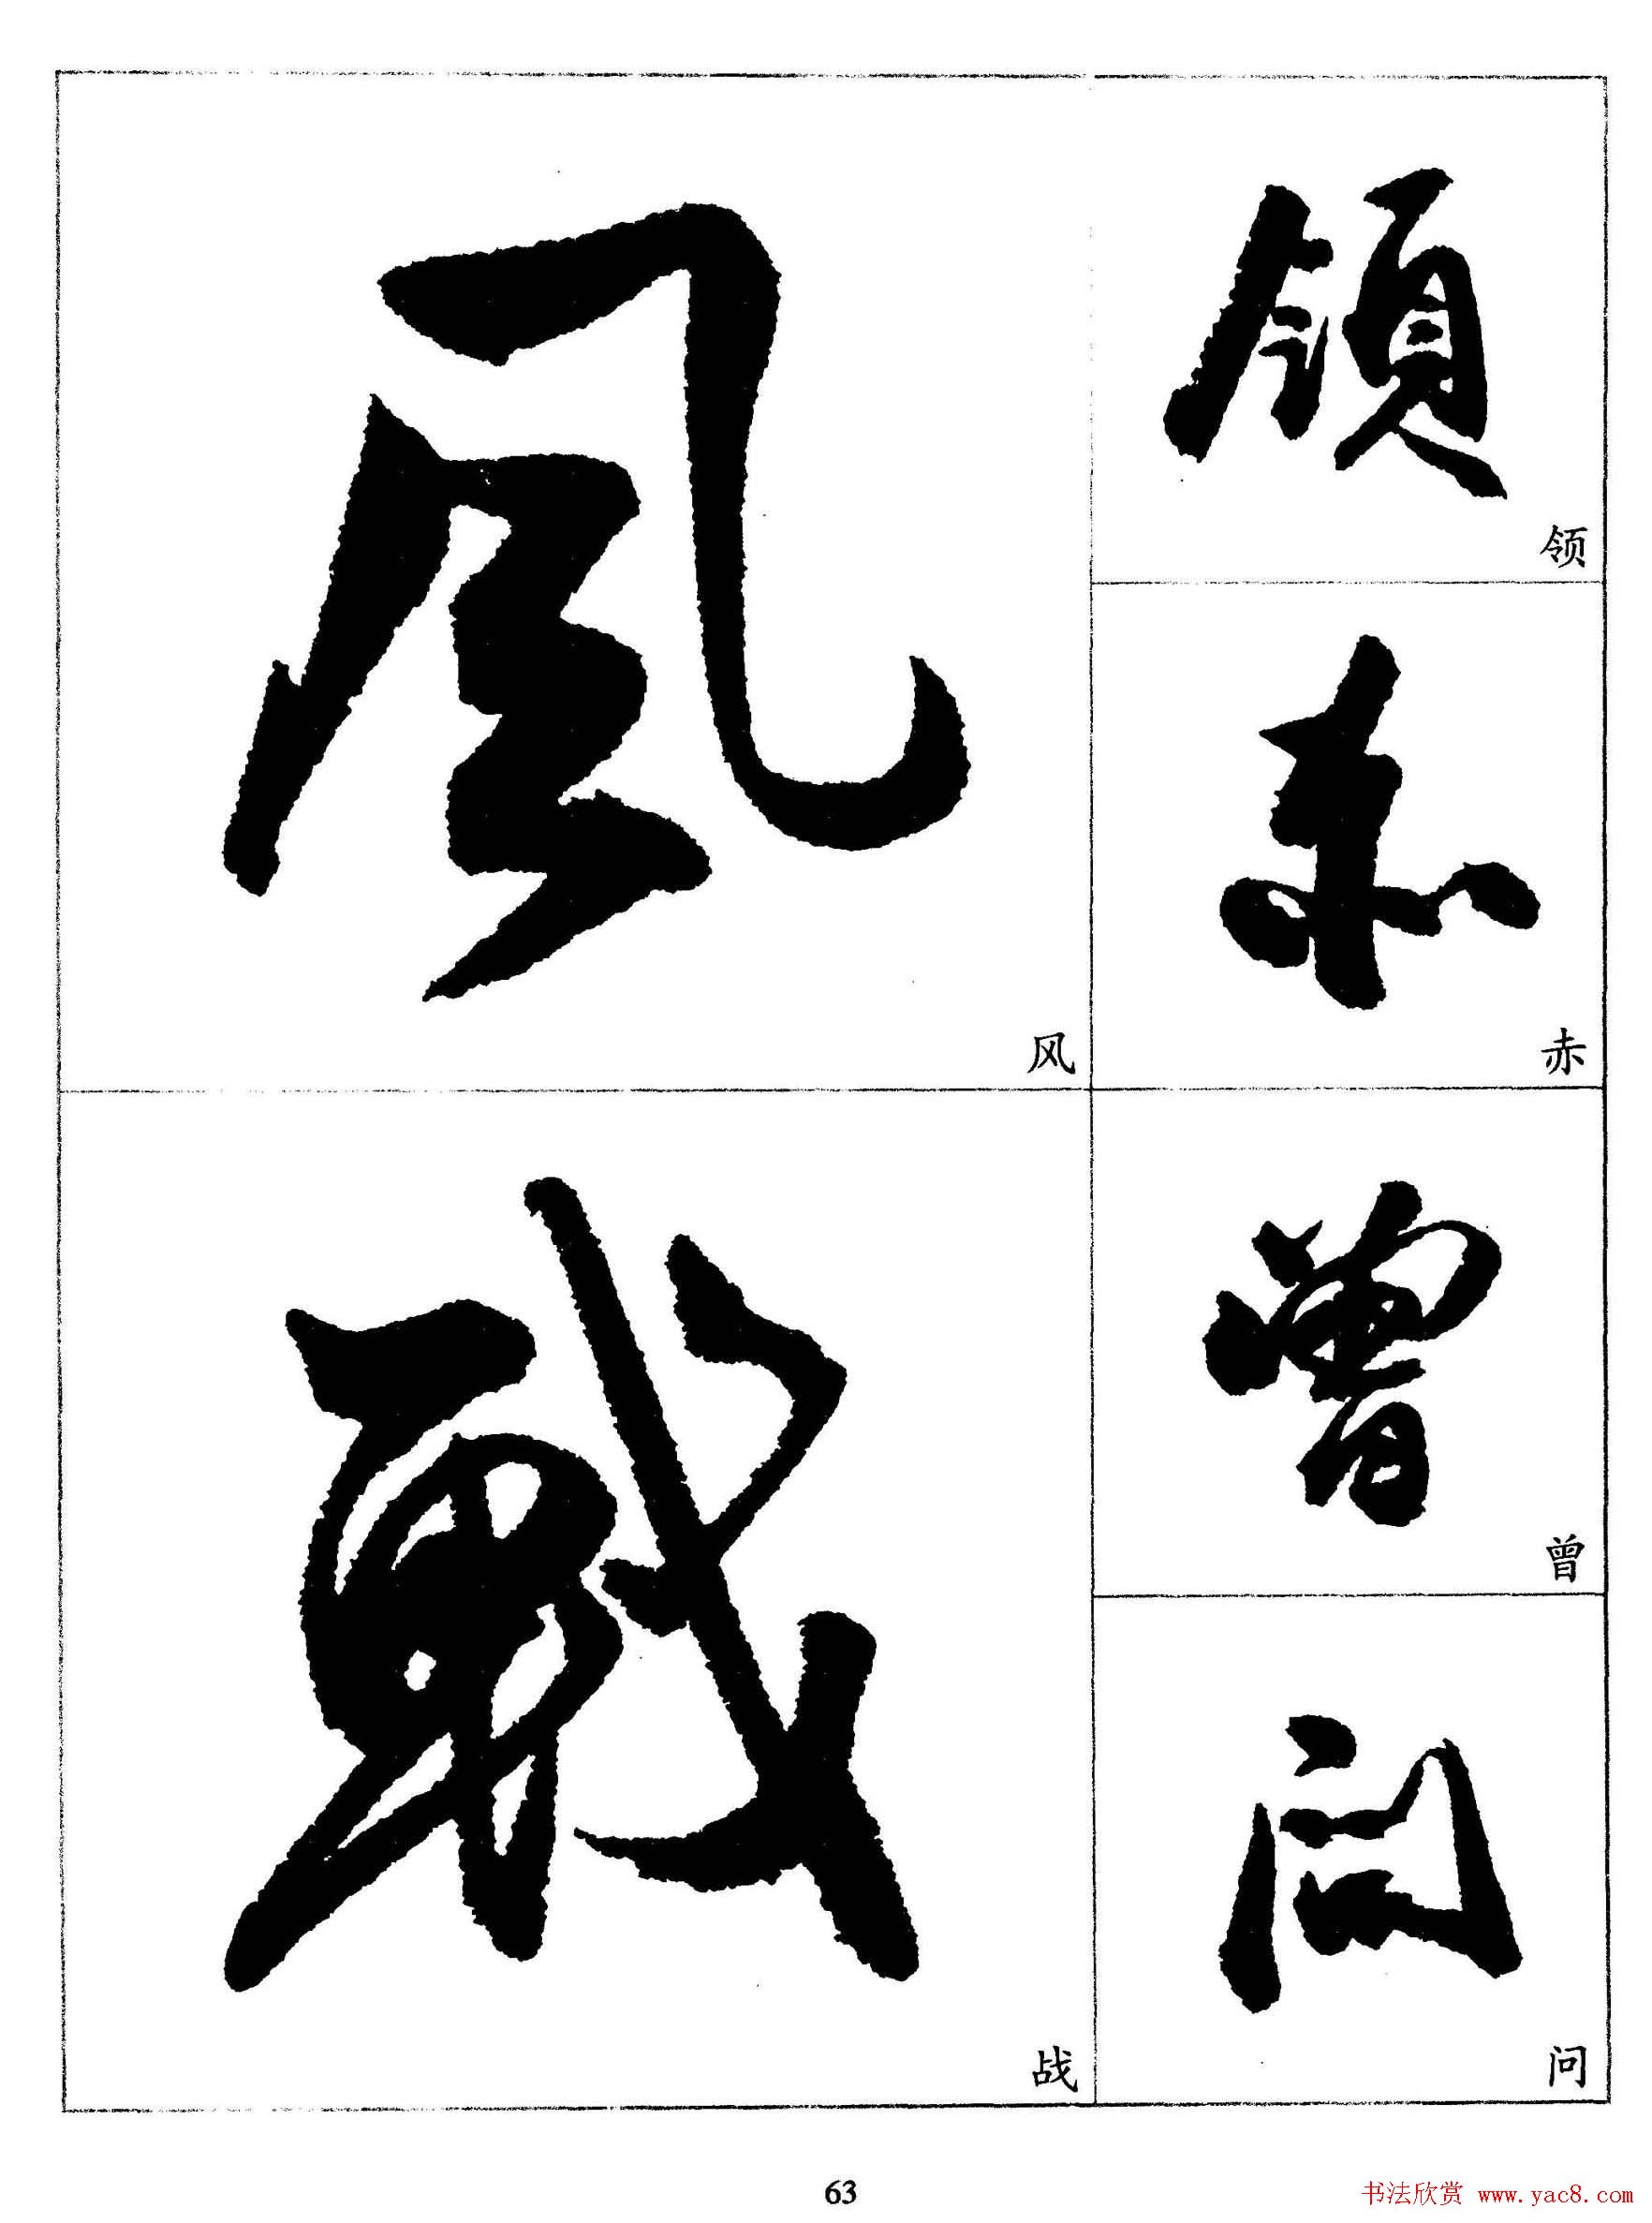 領
领
赤
赤
曾
曾
問
问
風
风
戰
战
63
书法欣赏 www.yac8.com